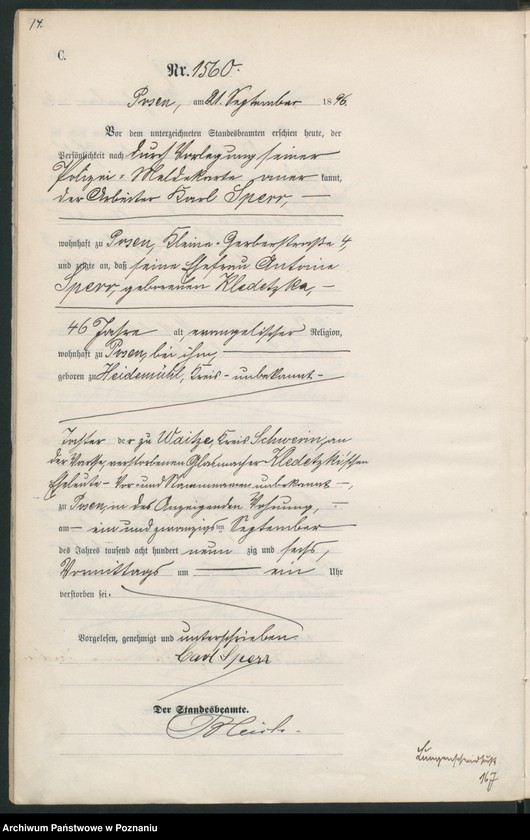 14.
C.
Nr. 1560.
Posen, am 21. September 1896.
Vor dem unterzeichneten Standesbeamten erschien heute, der
Persönlichkeit nach durch Vorlegung seiner
Polizei-Meldekarte anerkannt,
der Arbeiter Karl Sperr, —
wohnhaft zu Posen, Kleine-Gerberstraße 4
und zeigte an, daß seine Ehefrau Antonie
Sperr, geborenen Kledetzka, —
46 Jahre alt evangelischer Religion,
wohnhaft zu Posen, bei ihm, —
geboren zu Heidemühl, Kreis - unbekannt -
Tochter der zu Waitze, Kreis Schwerin, an
der Warthe, verstorbenen Glasmacher Kledetzki'schen
Eheleute - Vor- und Namen unbekannt -,
zu Posen, in des Anzeigenden Wohnung, —
am - ein und zwanzigsten September
des Jahres tausend acht hundert neun zig und sechs,
Vormittags um — ein Uhr
verstorben sei.
Vorgelesen, genehmigt und unterschrieben
Carl Sperr
Der Standesbeamte.
Lungenschwindsucht
167
Archiwum Państwowe w Poznaniu